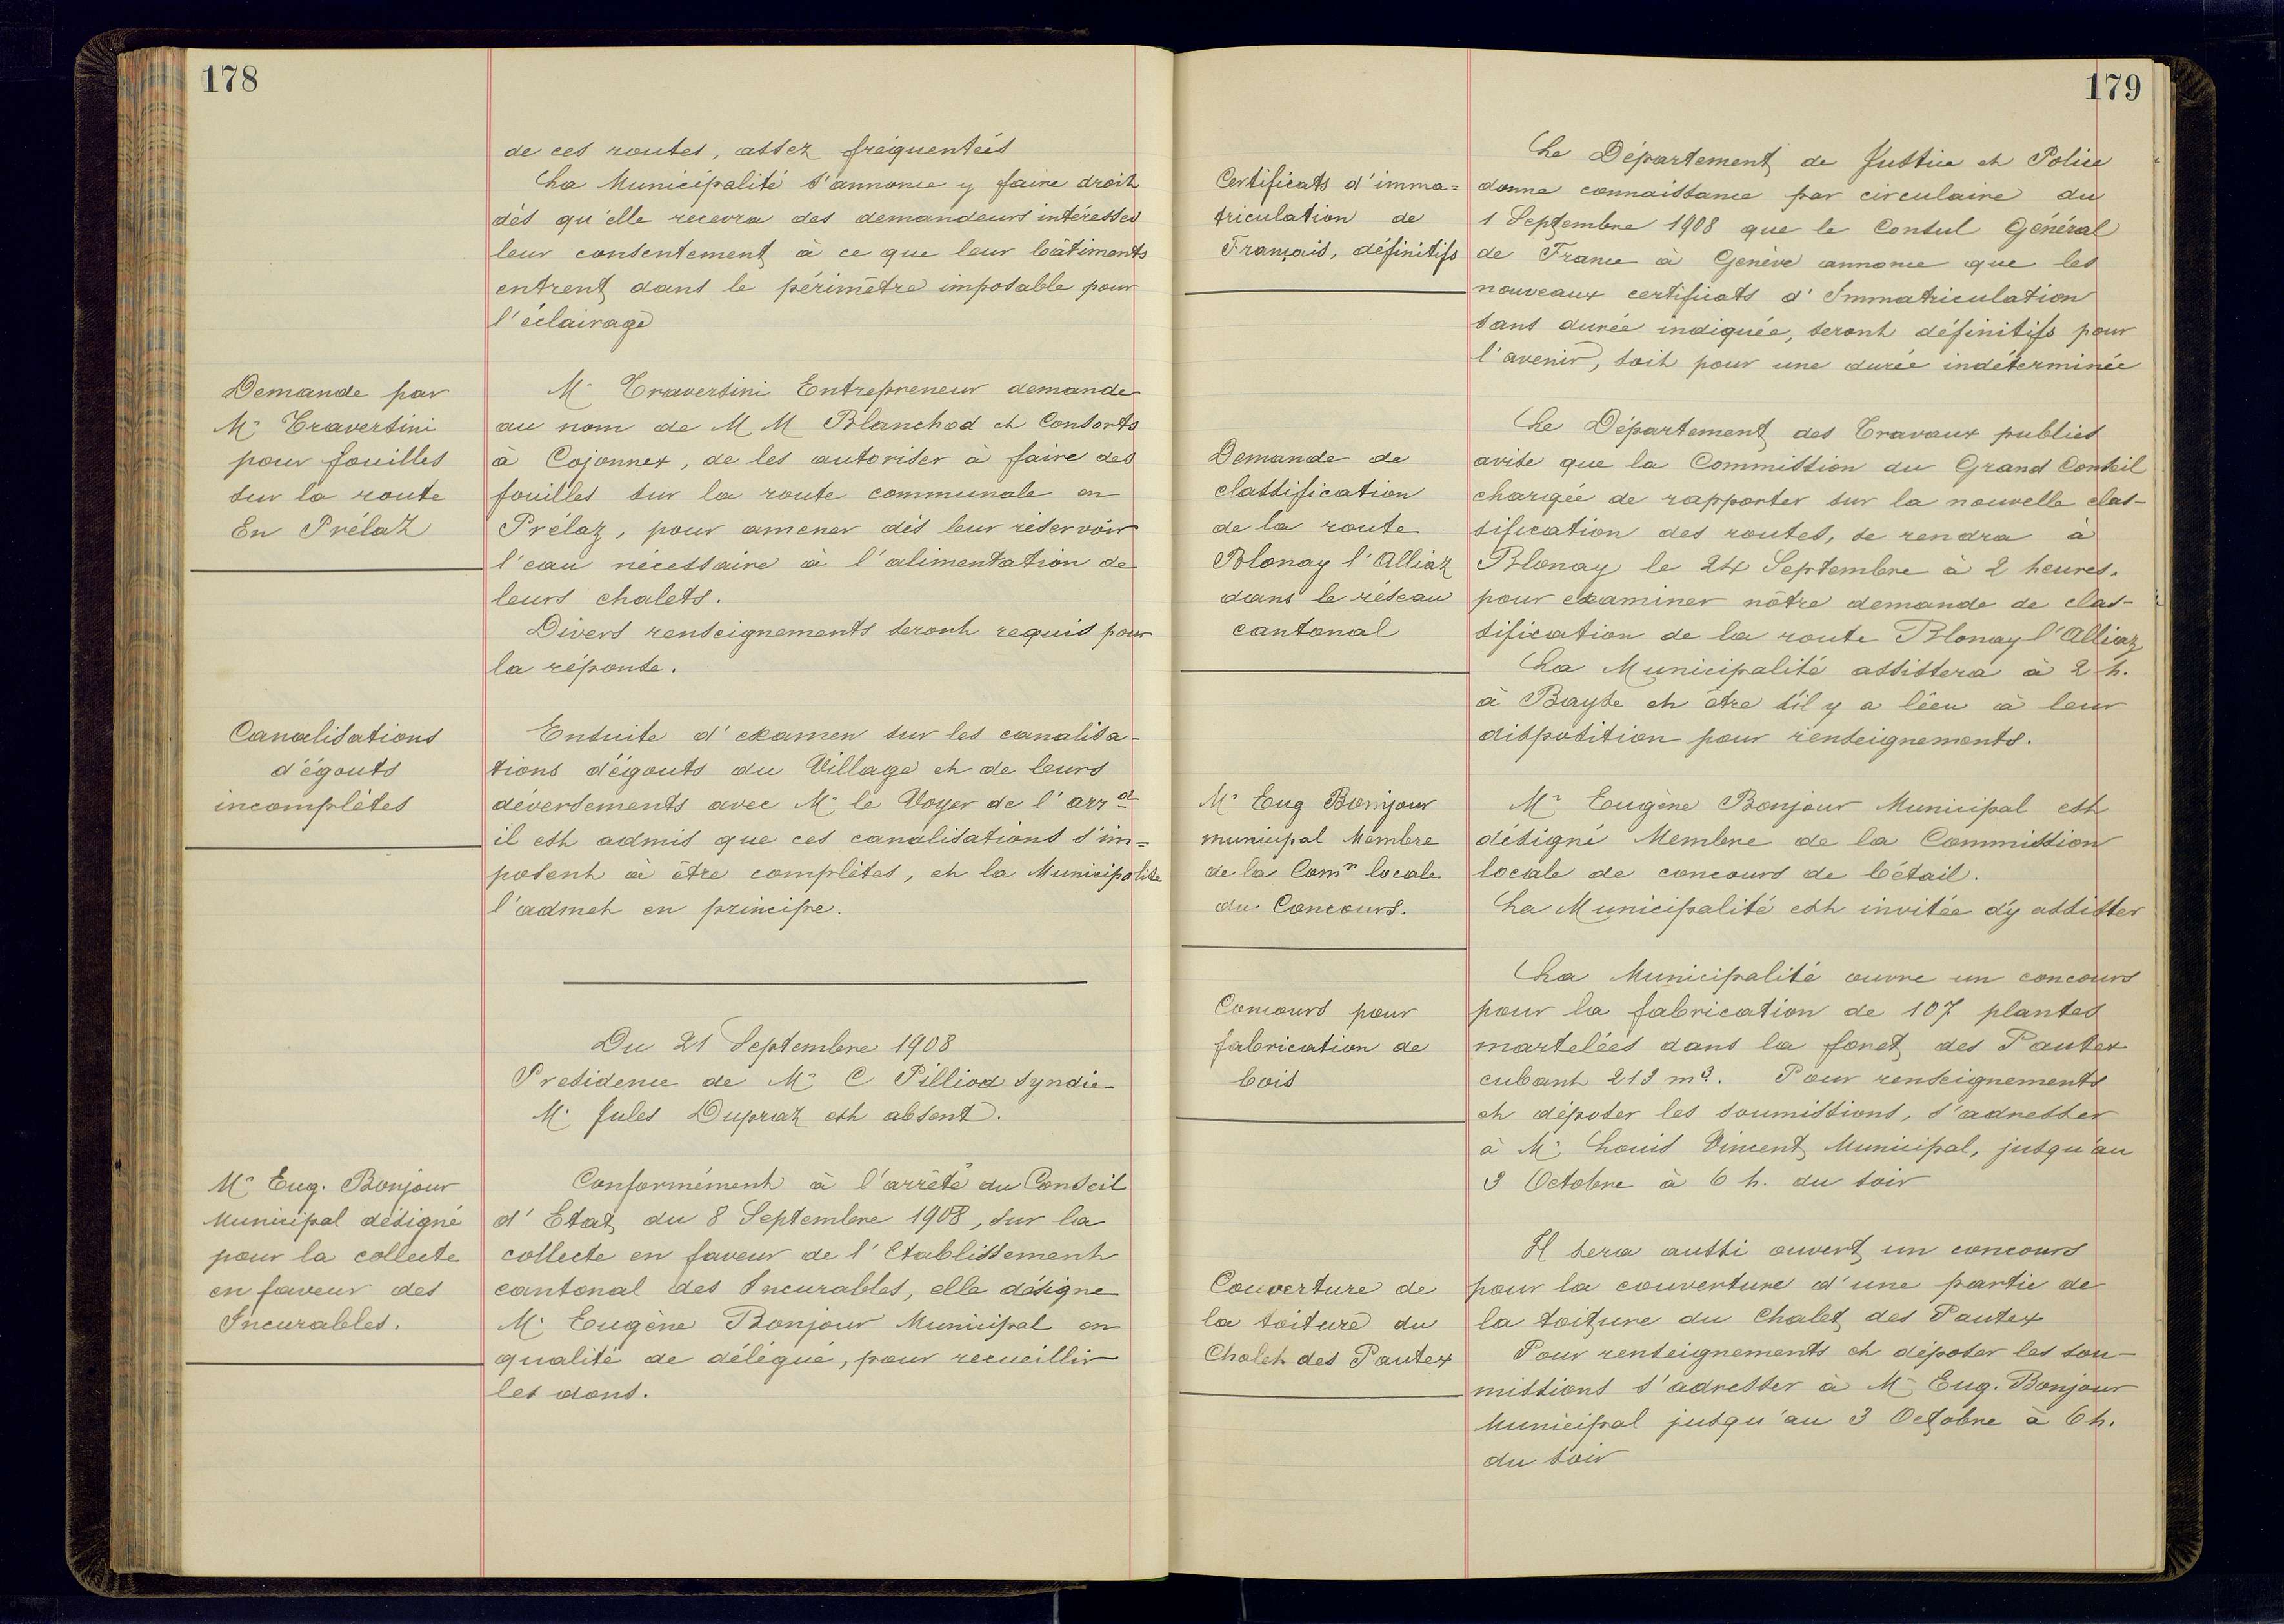 178
de ces routes, assez fréquentées
La Municipalité s'annonce y faire droit
dès qu'elle recevra des demandeurs intéressés
leur consentement à ce que leur bâtiments
entrent dans le périmètre imposable pour
l'éclairage
Demande par
Mr Traversini
pour fouilles
sur la route
En Prélaz
Mr Traversini Entrepreneur demande
au nom de M M Blanchod et Consorts
à Cojonnex, de les autoriser à faire des
fouilles sur la route communale en
Prélaz, pour amener dès leur réservoir
l'eau nécessaire à l'alimentation de
leurs chalets.
Divers renseignements seront requis pour
la réponse.
Canalisations
d'égouts
incomplètes
Ensuite d'examen sur les canalisa-
tions d'égouts du Village et de leurs
déversements avec Mr le Voyer de l'arrdt
il est admis que ces canalisations s'im=
posent à être complètes, et la Municipalité
l'admet en principe.
Du 21 Septembre 1908
Presidence de Mr C Pilliod syndic
Mr Jules Dupraz est absent.
Mr Eug. Bonjour
Municipal désigné
pour la collecte
en faveur des
Incurables.
Conformément à l'arrêté du Conseil
d'Etat du 8 Septembre 1908, sur la
collecte en faveur de l'Etablissement
cantonal des Incurables, elle désigne
Mr Eugène Bonjour Municipal en
qualité de délégué, pour recueillir
les dons.
179
Certificats d'imma=
triculation de
Français, définitifs
Le Département de Justice et Police
donne connaissance par circulaire du
1 Septembre 1908 que le Consul Général
de France à Genève annonce que les
nouveaux certificats d'Immatriculation
sans durée indiquée, seront définitifs pour
l'avenir, soit pour une durée indéterminée
Demande de
classification
de la route
Blonay l'Alliaz
dans le réseau
cantonal
Le Département des Travaux publics
avise que la Commission du Grand Conseil
chargée de rapporter sur la nouvelle clas-
sification des routes, se rendra à
Blonay le 24 Septembre à 2 heures.
pour examiner nôtre demande de clas-
sification de la route Blonay l'Alliaz
La Municipalité assistera à 2 h.
à Bayse et être s'il y a lieu à leur
disposition pour renseignements.
Mr Eug Bonjour
municipal Membre
de la Comn locale
du Concours.
Mr Eugène Bonjour Municipal est
désigné Membre de la Commission
locale de concours de bétail.
La Municipalité est invitée d'y assister
Concours pour
fabrication de
bois
La Municipalité ouvre un concours
pour la fabrication de 107 plantes
martelées dans la foret des Pautex
cubant 213 m3. Pour renseignements
et déposer les soumissions, s'adresser
à Mr Louis Vincent Municipal, jusqu'au
3 Octobre à 6 h. du soir
Couverture de
la toiture du
Chalet des Pautex
Il sera aussi ouvert un concours
pour la couverture d'une partie de
la toiture du Chalet des Pautex
Pour renseignements et déposer les sou-
missions s'adresser à Mr Eug. Bonjour
Municipal jusqu'au 3 Octobre à 6 h.
du soir